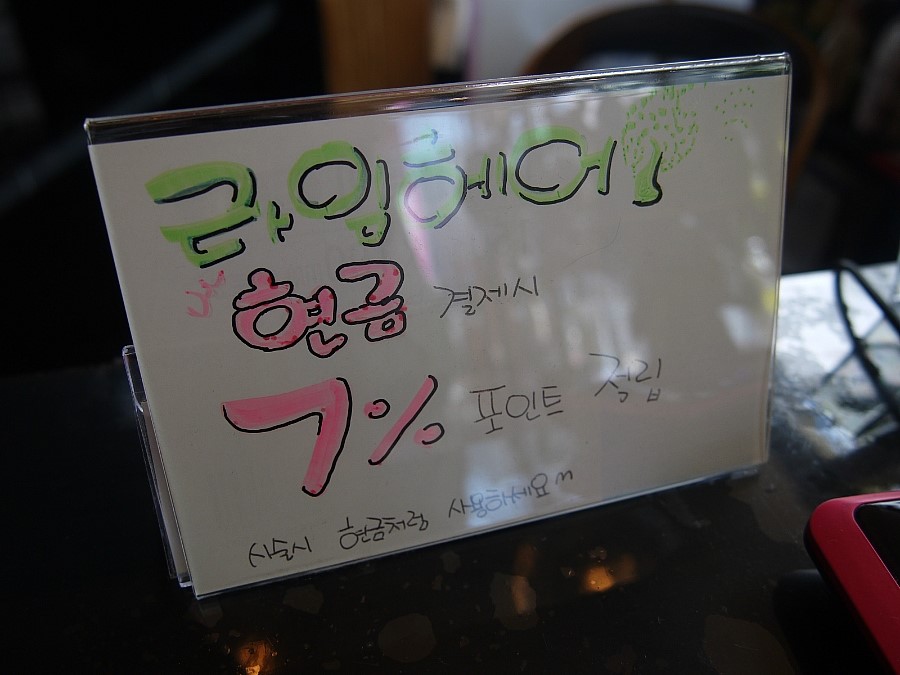 라임헤어!
현금 결제시
7% 포인트 적립
시술시 현금처럼 사용하세요 m